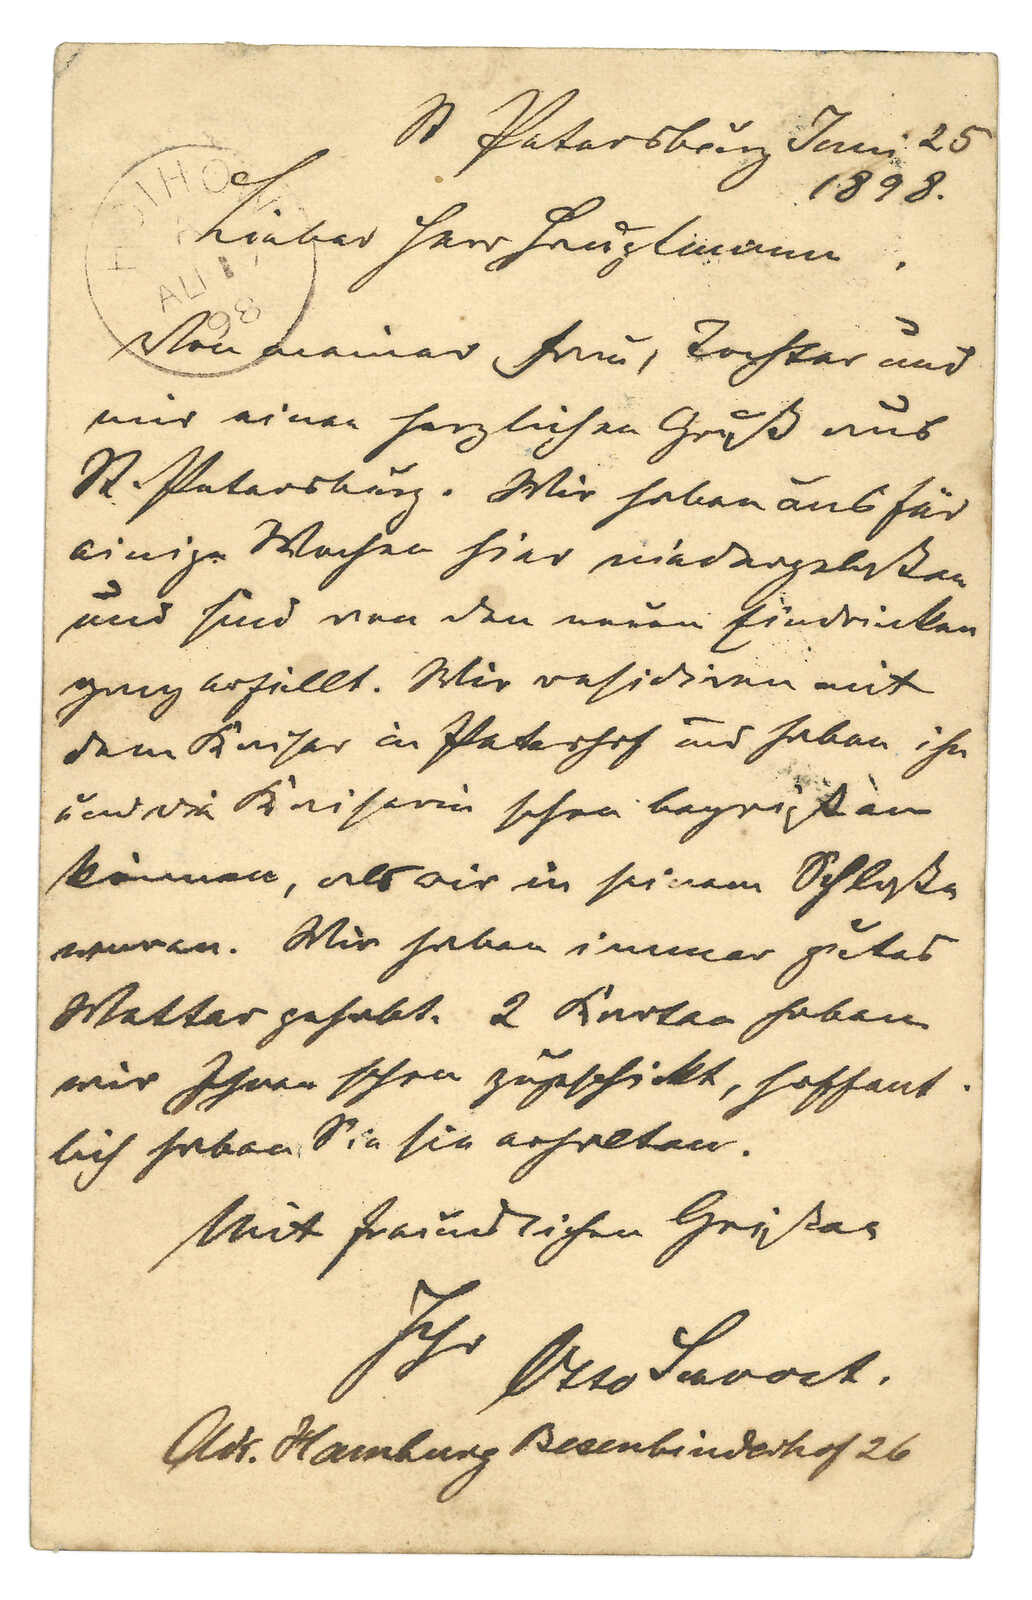 St Petersburg Juni 25
1898.
Lieber Herr Hauptmann,
Von meiner Frau, Tochter und
mir einen herzlichen Gruß aus
St. Petersburg. Wir haben uns für
einige Wochen hier niedergelaßen
und sind von den neuen Eindrücken
ganz erfüllt. Wir residiren mit
dem Kaiser in Peterhof und haben ihn
und die Kaiserin schon begrüßen
können, als wir in seinem Schloße
waren. Wir haben immer gutes
Wetter gehabt. 2 Karten haben
wir Ihnen schon zugeschickt, hoffent-
lich haben Sie sie erhalten.
Mit freundlichen Grüßen
Ihr
Otto
Adr. Hamburg Besenbinderhof 26
98